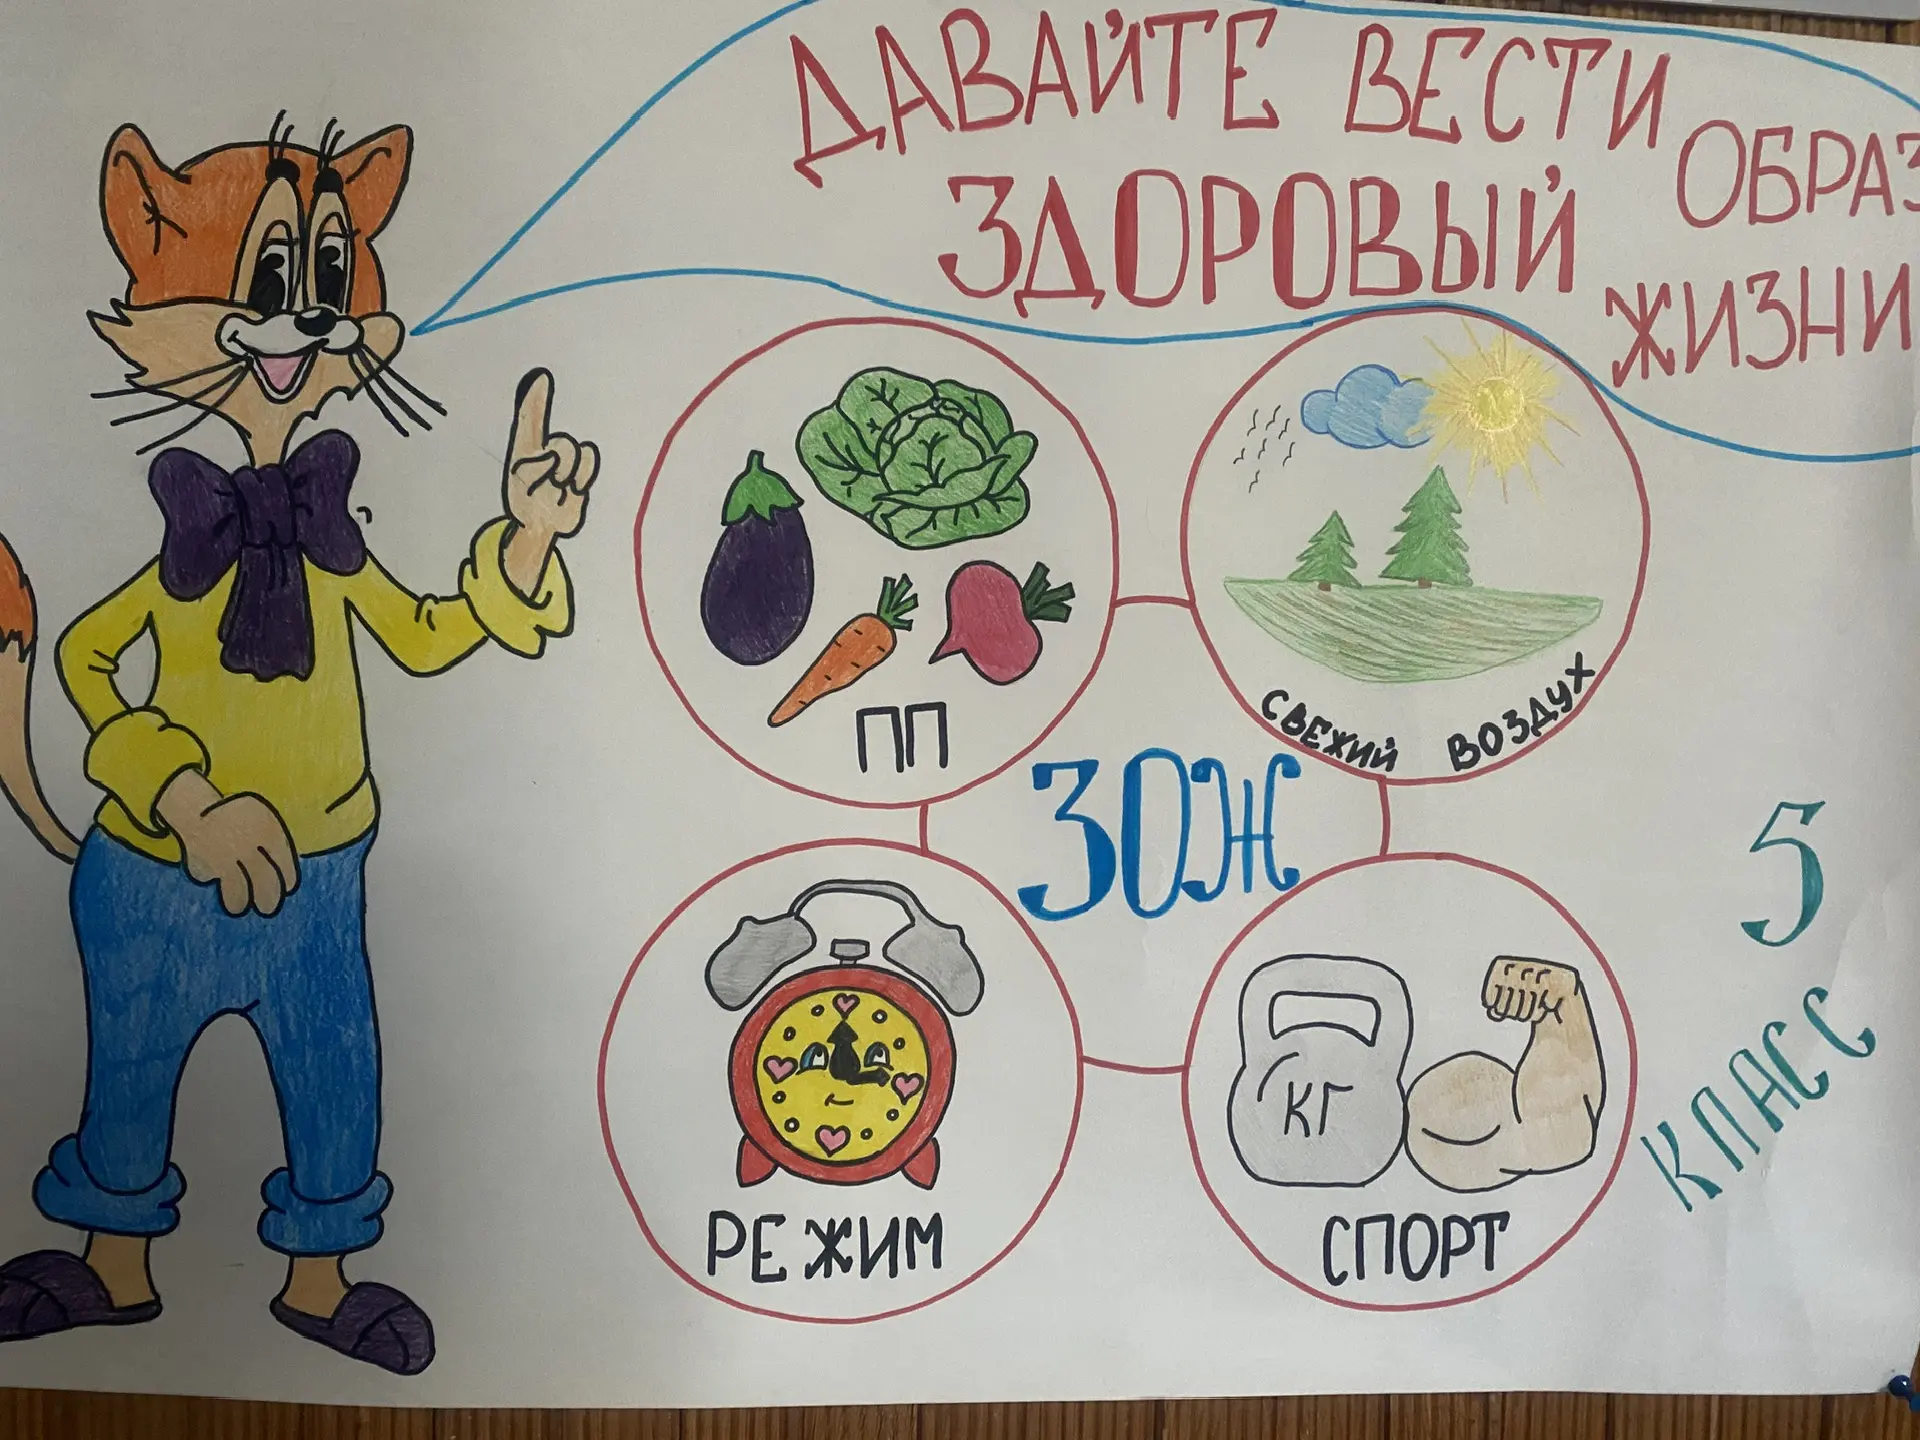 ДАВАЙТЕ ВЕСТИ
ЗДОРОВЫЙ
ОБРАЗ
ЖИЗНИ
ПП
СВЕЖИЙ ВОЗДУХ
ЗОЖ
РЕЖИМ
КГ
СПОРТ
5
КЛАСС